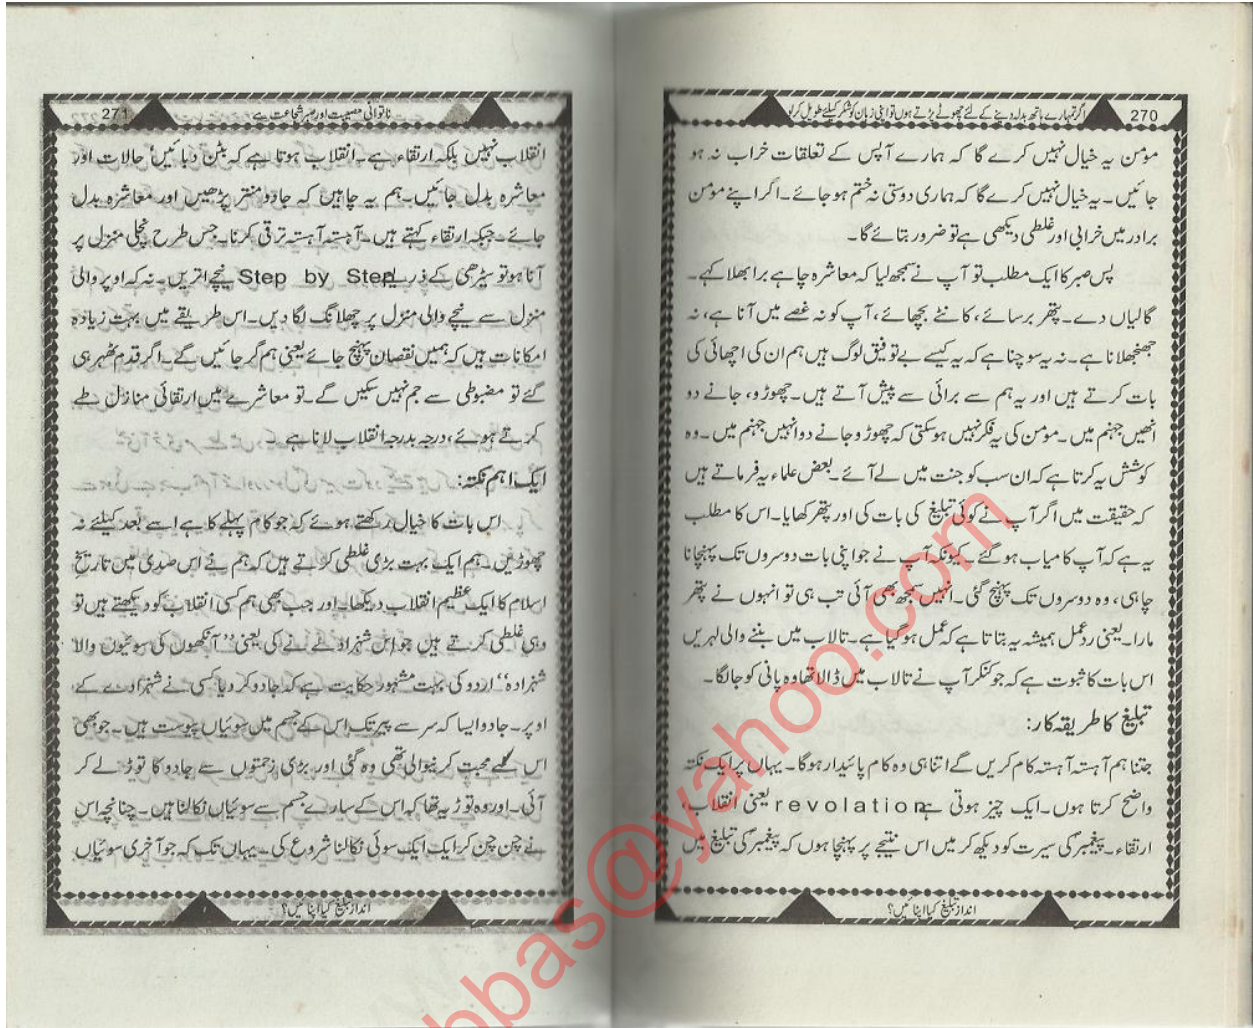 270
اگر تمہارے ہاتھ بدلہ دینے کے لئے چھوٹے پڑتے ہوں تو اپنی زبان کو شکر کیلئے طویل کر لو
مؤمن یہ خیال نہیں کرے گا کہ ہمارے آپس کے تعلقات خراب نہ ہو
جائیں۔ یہ خیال نہیں کرے گا کہ ہماری دوستی نہ ختم ہو جائے۔ اگر اپنے مؤمن
برادر میں خرابی اور غلطی دیکھی ہے تو ضرور بتائے گا۔
پس صبر کا ایک مطلب تو آپ نے سمجھ لیا کہ معاشرہ چاہے برا بھلا کہے۔
گالیاں دے۔ پتھر برسائے، کانٹے بچھائے، آپ کو نہ غصے میں آنا ہے، نہ
جھنجھلانا ہے۔ نہ یہ سوچنا ہے کہ یہ کیسے بے توفیق لوگ ہیں ہم ان کی اچھائی کی
بات کرتے ہیں اور یہ ہم سے برائی سے پیش آتے ہیں۔ چھوڑو، جانے دو
انھیں جہنم میں۔ مؤمن کی یہ فکر نہیں ہو سکتی کہ چھوڑو جانے دو انہیں جہنم میں۔ وہ
کوشش یہ کرتا ہے کہ ان سب کو جنت میں لے آئے۔ بعض علماء یہ فرماتے ہیں
کہ حقیقت میں اگر آپ نے کوئی تبلیغ کی بات کی اور پتھر کھایا۔ اس کا مطلب
یہ ہے کہ آپ کامیاب ہو گئے۔ کیونکہ آپ نے جو اپنی بات دوسروں تک پہنچانا
چاہی، وہ دوسروں تک پہنچ گئی۔ انہیں سمجھ بھی آئی تب ہی تو انہوں نے پتھر
مارا۔ یعنی ردعمل ہمیشہ یہ بتاتا ہے کہ عمل ہو گیا ہے۔ تالاب میں بننے والی لہریں
اس بات کا ثبوت ہے کہ جو کنکر آپ نے تالاب میں ڈالا تھا وہ پانی کو جا لگا۔
تبلیغ کا طریقہ کار:
جتنا ہم آہستہ آہستہ کام کریں گے اتنا ہی وہ کام پائیدار ہوگا۔ یہاں پر ایک نکتہ
واضح کرتا ہوں۔ ایک چیز ہوتی ہے revolation یعنی انقلاب،
ارتقاء۔ پیغمبرؐ کی سیرت کو دیکھ کر میں اس نتیجے پر پہنچا ہوں کہ پیغمبرؐ کی تبلیغ میں
انداز تبلیغ کیا اپنائیں؟
271
ناتوانی مصیبت اور صبر شجاعت ہے
انقلاب نہیں بلکہ ارتقاء ہے۔ انقلاب ہوتا ہے کہ بٹن دبائیں، حالات اور
معاشرہ بدل جائیں۔ ہم یہ چاہیں کہ جادو منتر پڑھیں اور معاشرہ بدل
جائے۔ جبکہ ارتقاء کہتے ہیں۔ آہستہ آہستہ ترقی کرنا۔ جس طرح نچلی منزل پر
آنا ہو تو سیڑھی کے ذریعے Step by Step نیچے اتریں۔ نہ کہ اوپر والی
منزل سے نیچے والی منزل پر چھلانگ لگا دیں۔ اس طریقے میں بہت زیادہ
امکانات ہیں کہ ہمیں نقصان پہنچ جائے یعنی ہم گر جائیں گے۔ اگر قدم ٹھہر ہی
گئے تو مضبوطی سے جم نہیں سکیں گے۔ تو معاشرے میں ارتقائی منازل طے
کرتے ہوئے، درجہ بدرجہ انقلاب لانا ہے۔
ایک اہم نکتہ:
اس بات کا خیال رکھتے ہوئے کہ جو کام پہلے کا ہے اسے بعد کیلئے نہ
چھوڑیں۔ ہم ایک بہت بڑی غلطی کرتے ہیں کہ ہم نے اس صدی میں تاریخ
اسلام کا ایک عظیم انقلاب دیکھا۔ اور جب بھی ہم کسی انقلاب کو دیکھتے ہیں تو
وہی غلطی کرتے ہیں جو اس شہزادے نے کی یعنی ”آنکھوں کی سوئیوں والا
شہزادہ“ اردو کی بہت مشہور حکایت ہے کہ جادو کر دیا کسی نے شہزادے کے
اوپر۔ جادو ایسا کہ سر سے پیر تک اس کے جسم میں سوئیاں پیوست ہیں۔ جو بھی
اس سے محبت کرنیوالی تھی وہ گئی اور بڑی زحمتوں سے جادو کا توڑ لے کر
آئی۔ اور وہ توڑ یہ تھا کہ اس کے سارے جسم سے سوئیاں نکالنا ہیں۔ چنانچہ اس
نے چن چن کر ایک ایک سوئی نکالنا شروع کی۔ یہاں تک کہ جو آخری سوئیاں
انداز تبلیغ کیا اپنائیں؟
bbas@yahoo.com